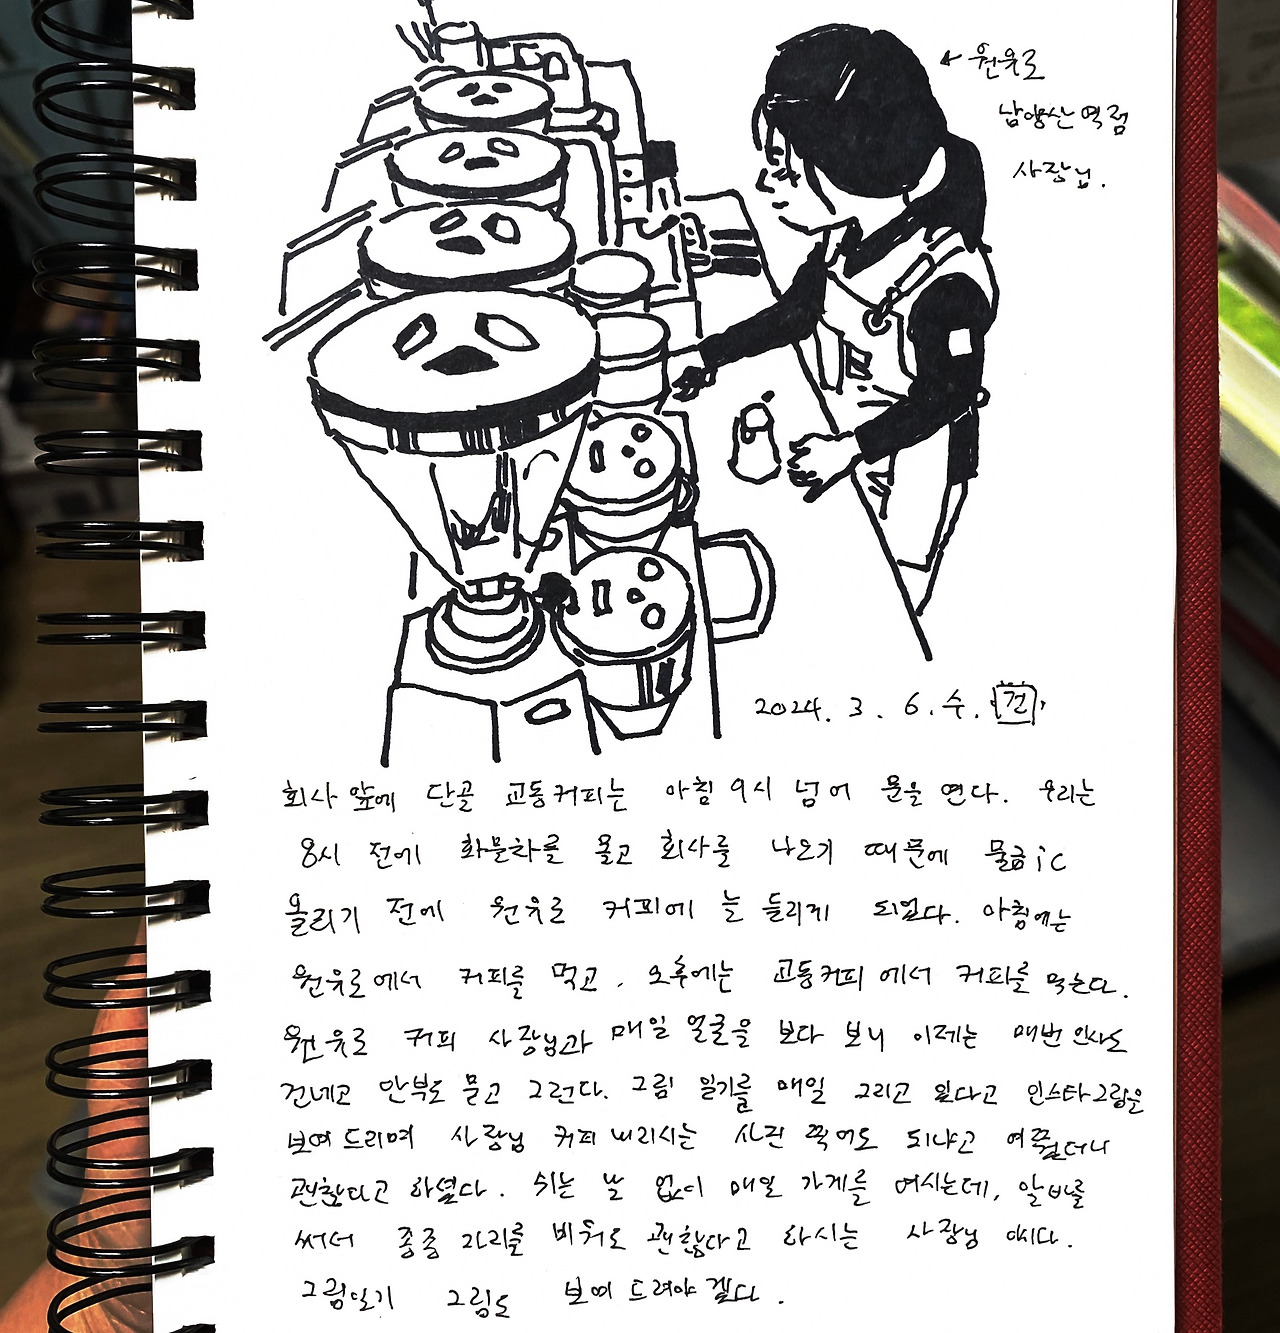 ← 원유로
남양산역점
사장님.
2024. 3. 6. 수. 건
회사 앞에 단골 교동커피는 아침 9시 넘어 문을 연다. 우리는
8시 전에 화물차를 몰고 회사를 나오기 때문에 물금ic
올리기 전에 원유로 커피에 늘 들리게 되었다. 아침에는
원유로에서 커피를 먹고, 오후에는 교동커피에서 커피를 먹는다.
원유로 커피 사장님과 매일 얼굴을 보다 보니 이제는 매번 인사도
건네고 안부도 묻고 그런다. 그림 일기를 매일 그리고 있다고 인스타그램을
보여 드리며 사장님 커피 내리시는 사진 찍어도 되냐고 여쭸더니
괜찮다고 하셨다. 쉬는 날 없이 매일 가게를 여시는데, 알바를
써서 종종 자리를 비워도 괜찮다고 하시는 사장님이시다.
그림일기 그림도 보여 드려야겠다.